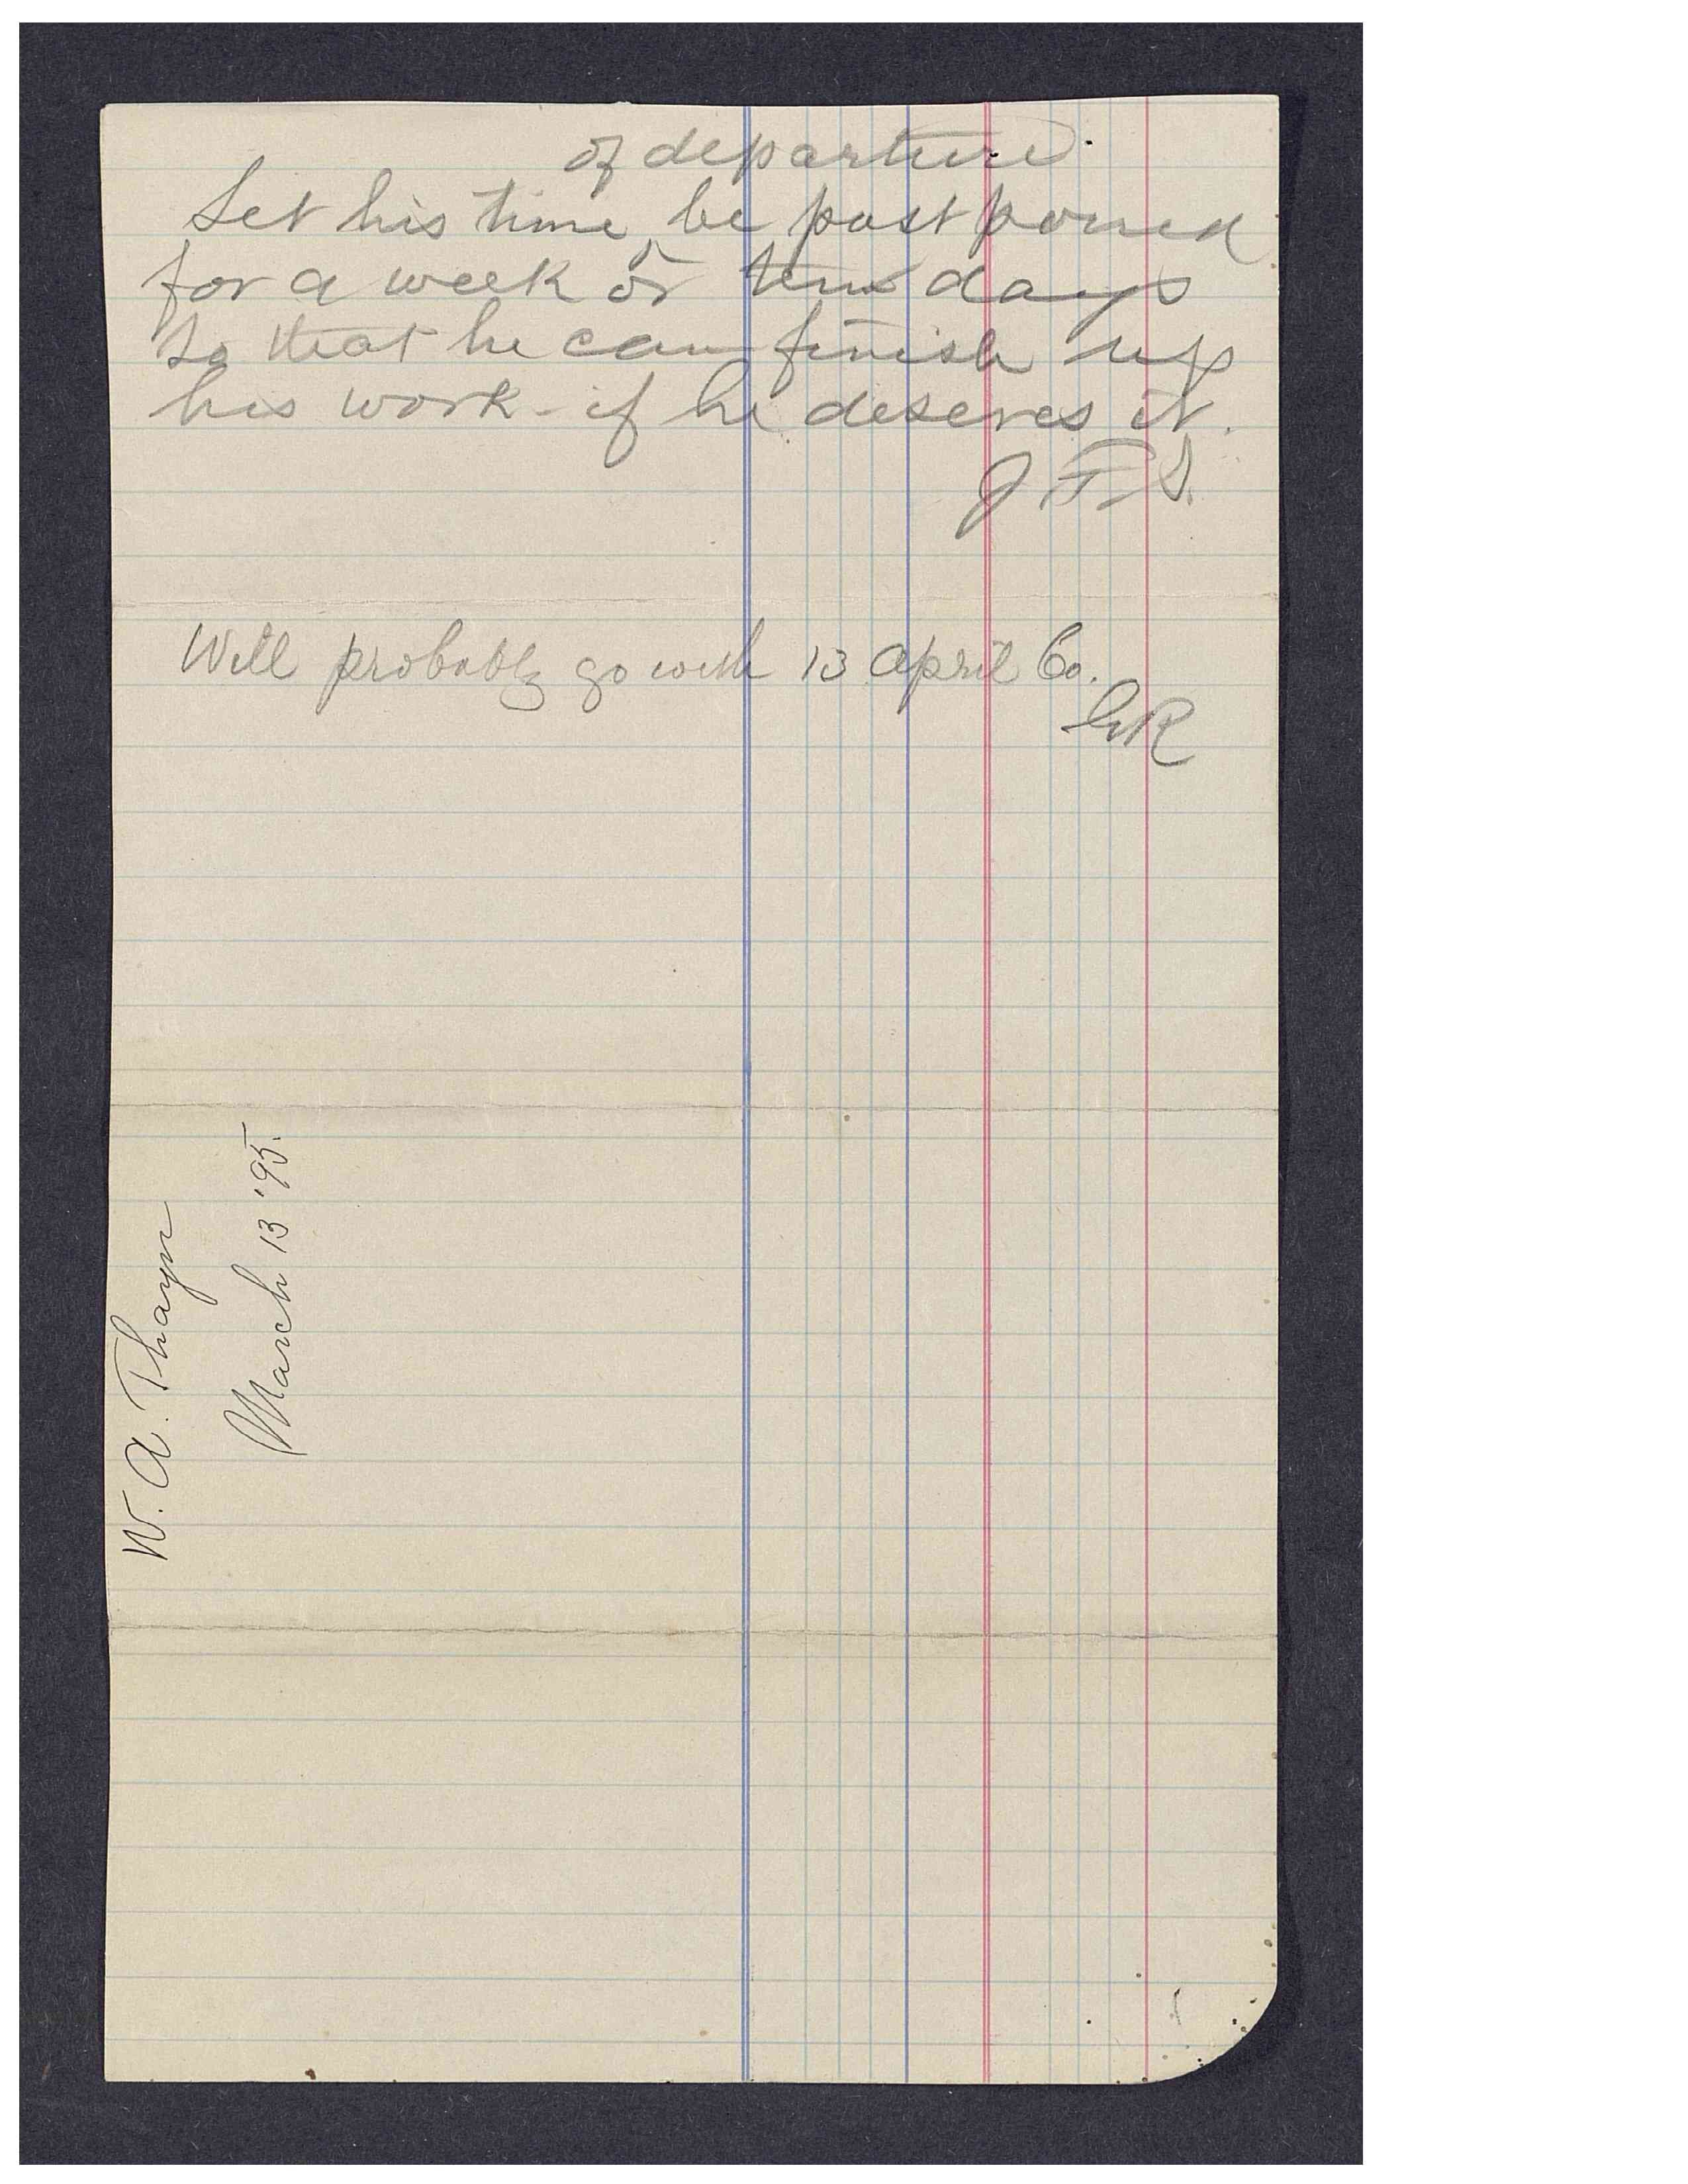 of departure.
Let his time ^ be postponed
for a week or ten days
so that he can finish up
his work - if he deserves it.
J F. S.
Will probably go with 13 April Co.
GR
W. A. Thayn
March 13 '95.